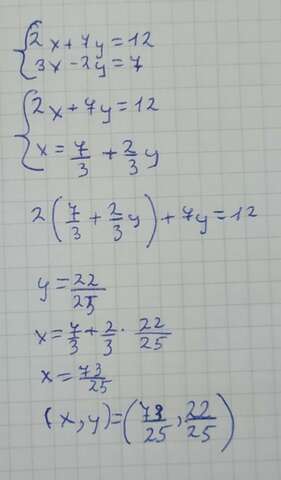 2x+7y=12
3x-2y=7
2x+7y=12
x=7/3+2/3y
2(7/3+2/3y)+7y=12
y=22/25
x=7/3+2/3·22/25
x=73/25
(x,y)=(73/25,22/25)